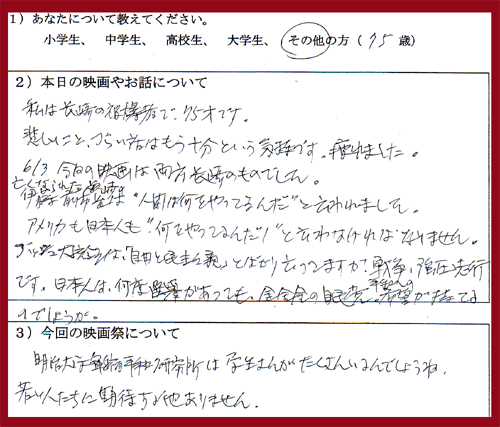 1）あなたについて教えてください。
小学生、 中学生、 高校生、 大学生、 その他の方（ 75 歳）
2）本日の映画やお話について
私は長崎の被爆者で、75才です。
悲しいこと、つらい話はもう十分という気持です。疲れました。
6/3 今日の映画は両方長崎のものでした。
亡くなられた
伊藤前市長は "人間は何をやってるんだ" と言われました。
アメリカも日本人も "何をやってるんだ!" と言わなければなりません。
ブッシュ大統領は、「自由と民主主義」とばかり云ってますが、戦争、強圧先行
です。日本人は、何度 があっても、金金金の自民党に 平和への 希望が持てる
のでしょうか。
3）今回の映画祭について
明治大学軍縮平和研究所は学生さんがたくさんいるんでしょうね。
若い人たちに期待する他ありません。